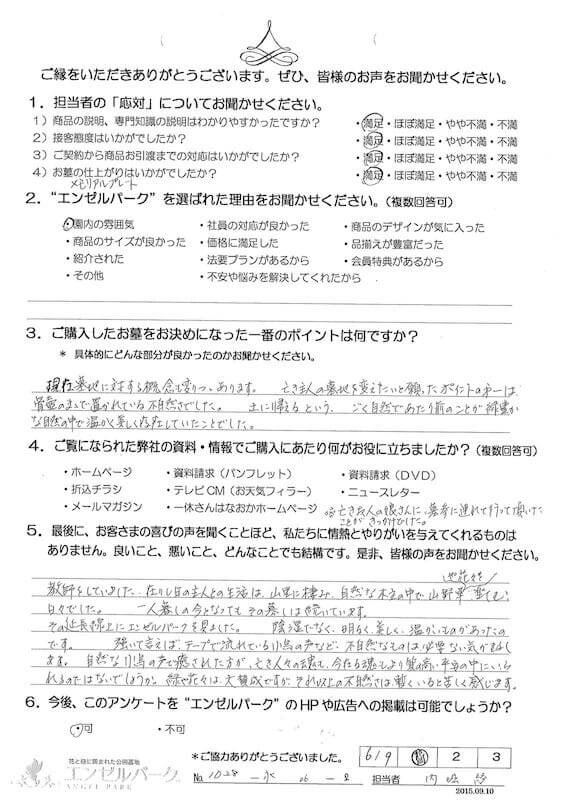 ご縁をいただきありがとうございます。ぜひ、皆様のお声をお聞かせください。
1. 担当者の「応対」についてお聞かせください。
1) 商品の説明、専門知識の説明はわかりやすかったですか? ・満足・ほぼ満足・やや不満・不満
2) 接客態度はいかがでしたか? ・満足・ほぼ満足・やや不満・不満
3) ご契約から商品お引渡までの対応はいかがでしたか? ・満足・ほぼ満足・やや不満・不満
4) お墓の仕上がりはいかがでしたか? ・満足・ほぼ満足・やや不満・不満
メモリアルプレート
2. “エンゼルパーク”を選ばれた理由をお聞かせください。(複数回答可)
・園内の雰囲気 ・社員の対応が良かった ・商品のデザインが気に入った
・商品のサイズが良かった ・価格に満足した ・品揃えが豊富だった
・紹介された ・法要プランがあるから ・会員特典があるから
・その他 ・不安や悩みを解決してくれたから
3. ご購入したお墓をお決めになった一番のポイントは何ですか?
* 具体的にどんな部分が良かったのかお聞かせください。
現在墓地に対する概念も変りつゝあります。 亡き主人の墓地を変えたいと願ったポイントの第一は、
骨壷のまゝで置かれている不自然さでした。 土に帰えるという、ごく自然であたり前のことが
な自然の中で温かく美しく存在していたことでした。
4. ご覧になられた弊社の資料・情報でご購入にあたり何がお役に立ちましたか?(複数回答可)
・ホームページ ・資料請求(パンフレット) ・資料請求(DVD)
・折込チラシ ・テレビCM(お天気フィラー) ・ニュースレター
・メールマガジン ・一休さんはなおかホームページ 亡き友人の娘さんに、墓参に連れて行って頂いた
ことがきっかけでした。
5. 最後に、お客さまの喜びの声を聞くことほど、私たちに情熱とやりがいを与えてくれるものは
ありません。良いこと、悪いこと、どんなことでも結構です。是非、皆様の声をお聞かせください。
教師をしていました、在りし日の主人との生活は、山里に棲み、自然な木立の中で、山野草
日々でした。 一人暮しの今となってもその暮しは続いています。
その延長線上にエンゼルパークを見ました。 陰湿でなく、明るく、美しく、温かいものがあったの
です。 強いて言えば、テープで流れている小鳥の声など、不自然なものは必要ない気が
ます。 自然な小鳥の声で癒された方が、亡き人々の
るのではないでしょうか。緑や花々は、大賛成ですが、それ以上の不自然さは
6. 今後、このアンケートを“エンゼルパーク”のHPや広告への掲載は可能でしょうか?
・可 ・不可
花と緑に囲まれた公園墓地
エンゼルパーク
ANGEL PARK
*ご協力ありがとうございました。 619 2 3
No 1028 - 永 06 - 2 担当者 内堀
2015.09.10